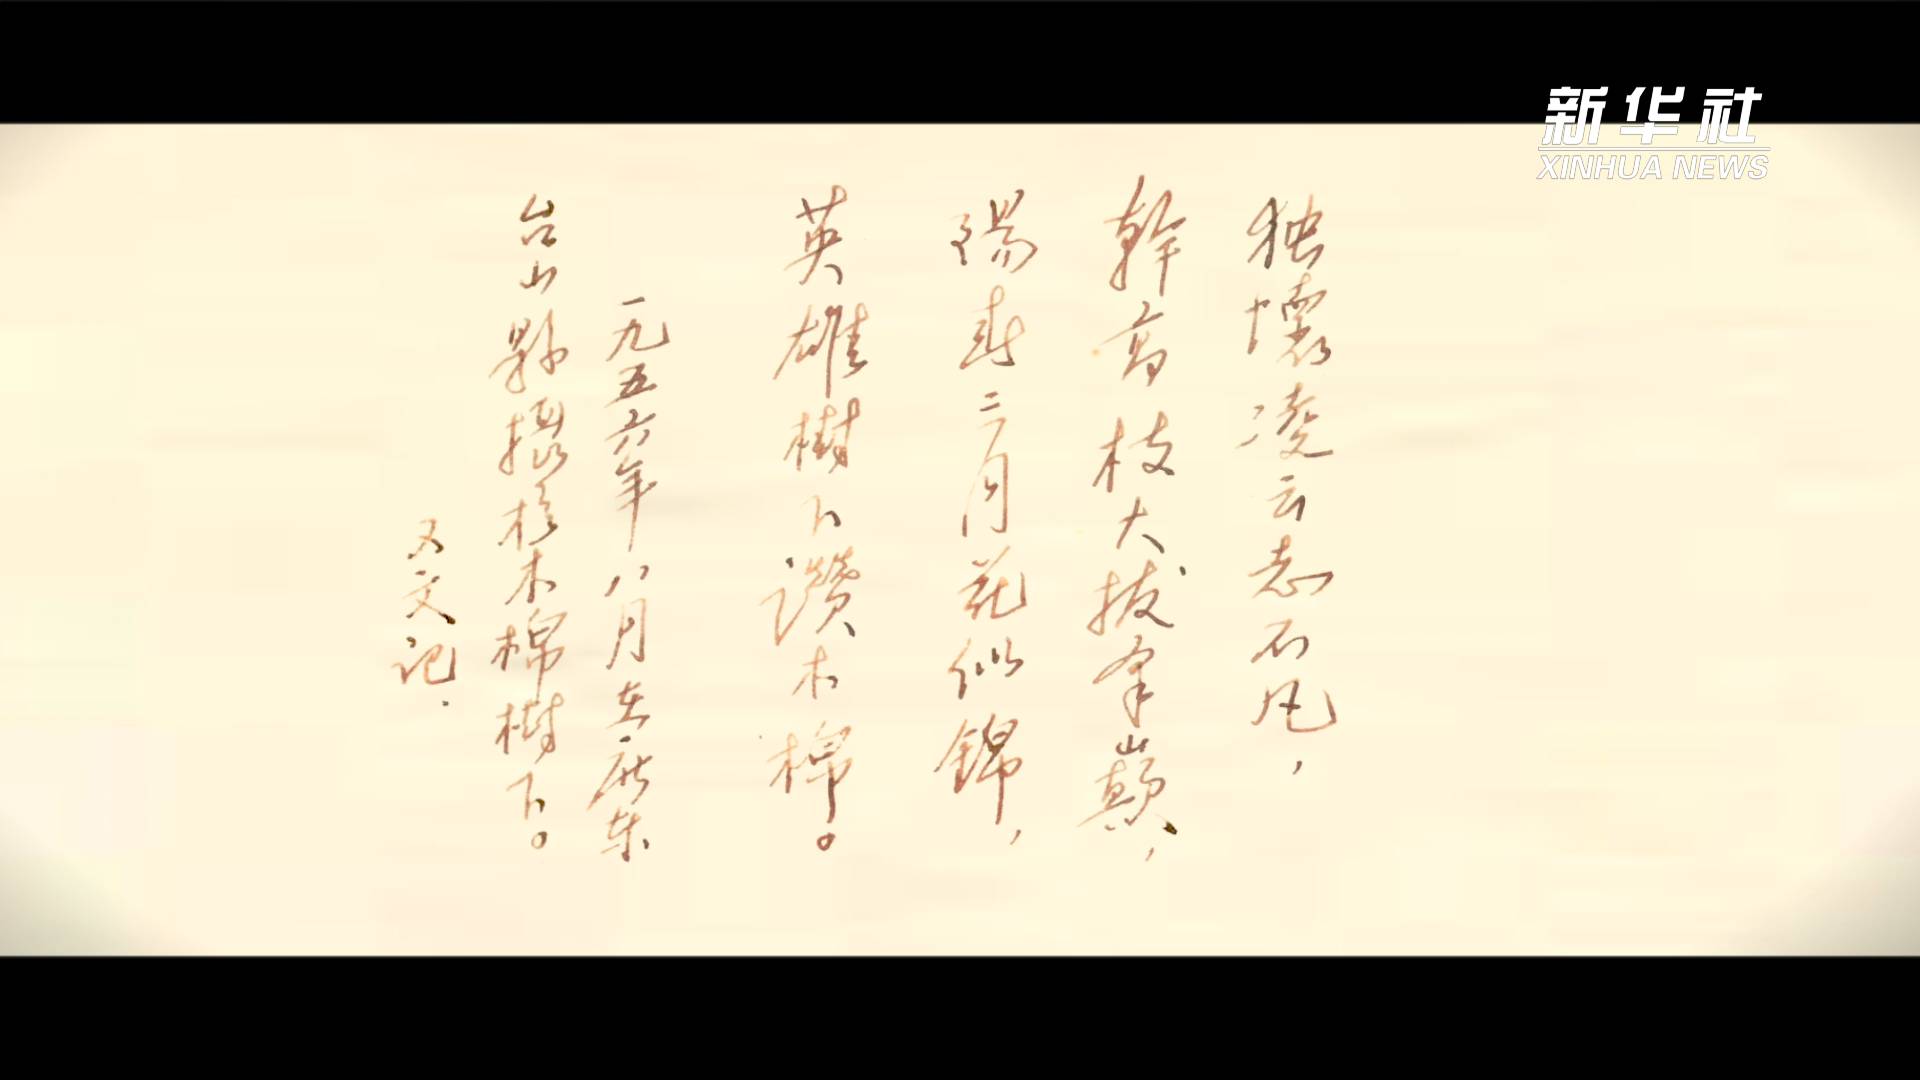 新华社
XINHUA NEWS
独懷凌云志不凡，
幹高枝大拔拿巔，
陽春三月花似錦，
英雄樹下讚木棉。
一九五六年八月在广东
台山縣攝於木棉樹下。
又文记.